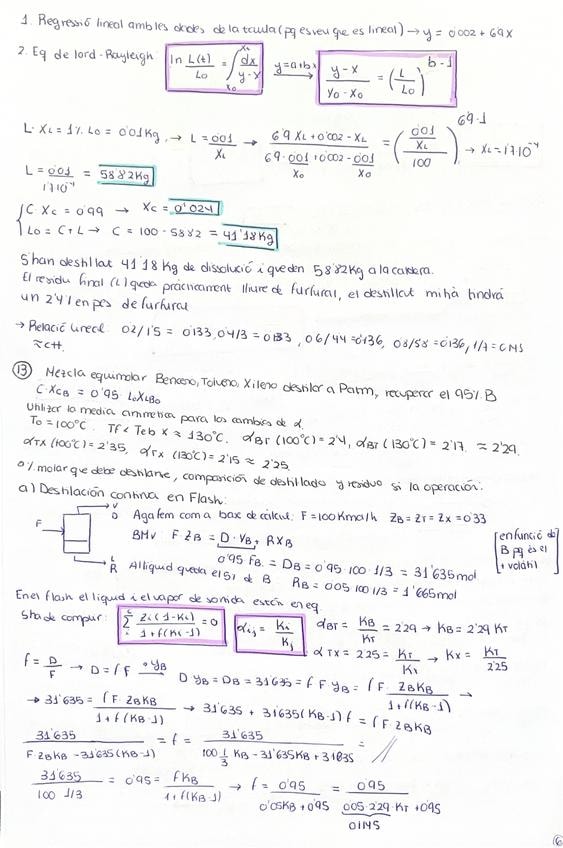 1. Regressió lineal amb les dades de la taula (pq es veu que es lineal) → y = 0'002 + 6'9X
2. Eq de lord-Rayleigh: ln L(t)/L0 = ∫ dx/(y-x) y=a+bx → (y-x)/(y0-x0) = (L/L0)^(b-1)
L·XL = 1% L0 = 0'01Kg → L = 0'01/XL → (6'9XL+0'002-XL)/(6'9·0'01/X0+0'002-0'01/X0) = ((0'01/XL)/100)^(6'9-1) → XL = 1'7·10⁻⁴
L = 0'01/1'7·10⁻⁴ = 58'82Kg
C·XC = 0'99 → XC = 0'024
L0 = C+L → C = 100-58'82 = 41'18Kg
S'han destil·lat 41'18 Kg de dissolució i queden 58'82Kg a la caldera.
El residu final (L) queda pràcticament lliure de furfural, el destil·lat mitjà tindrà
un 2'4% en pes de furfural
→ Relació lineal: 0'2/1'5 = 0'133, 0'4/3 = 0'133, 0'6/4'4 = 0'136, 0'8/5'8 = 0'136, 1/7 = 0'145
≈ ctt.
13 Mezcla equimolar Benceno, Tolueno, Xileno destilar a Patm, recuperar el 95% B
C·XCB = 0'95·L0XLB0
Utilizar la media aritmetica para los cambios de α.
T0 = 100ºC. Tf < Teb x ≈ 130ºC. αBT (100ºC) = 2'4, αBT (130ºC) = 2'17. ≈ 2'29.
αTX (100ºC) = 2'35, αTX (130ºC) = 2'15 ≈ 2'25.
% molar que debe destilarse, composición de destillado y residuo si la operación:
a) Destilación continua en Flash:
F V D L R
Agafem com a base de càlcul: F = 100Kmol/h ZB = ZT = ZX = 0'33
BMv F·ZB = D·YB + RXB
0'95 FB = DB = 0'95·100·1/3 = 31'635mol
Al liquid queda el 5% de B RB = 0'05·100·1/3 = 1'665mol
[en funció de B pq és el + volàtil]
En el flash el liquid i el vapor de sortida estàn en eq.
S'ha de complir: Σ Zi(1-Ki)/(1+f(Ki-1)) = 0 αi,j = Ki/Kj αBT = KB/KT = 2'29 → KB = 2'29 KT
αTX = 2'25 = KT/KX → KX = KT/2'25
f = D/F → D = fF ·yB → D yB = DB = 31'635 = fF yB = fF·ZBKB/(1+f(KB-1)) →
→ 31'635 = fF·ZBKB/(1+f(KB-1)) → 31'635 + 31'635(KB-1)f = fF·ZBKB
31'635/(F·ZBKB-31'635(KB-1)) = f = 31'635/(100·1/3 KB-31'635KB+31'635) =
31'635/(100·1/3) = 0'95 = fKB/(1+f(KB-1)) → f = 0'95/(0'05KB+0'95) = 0'95/(0'05·2'29·KT+0'95)
0'1145
6